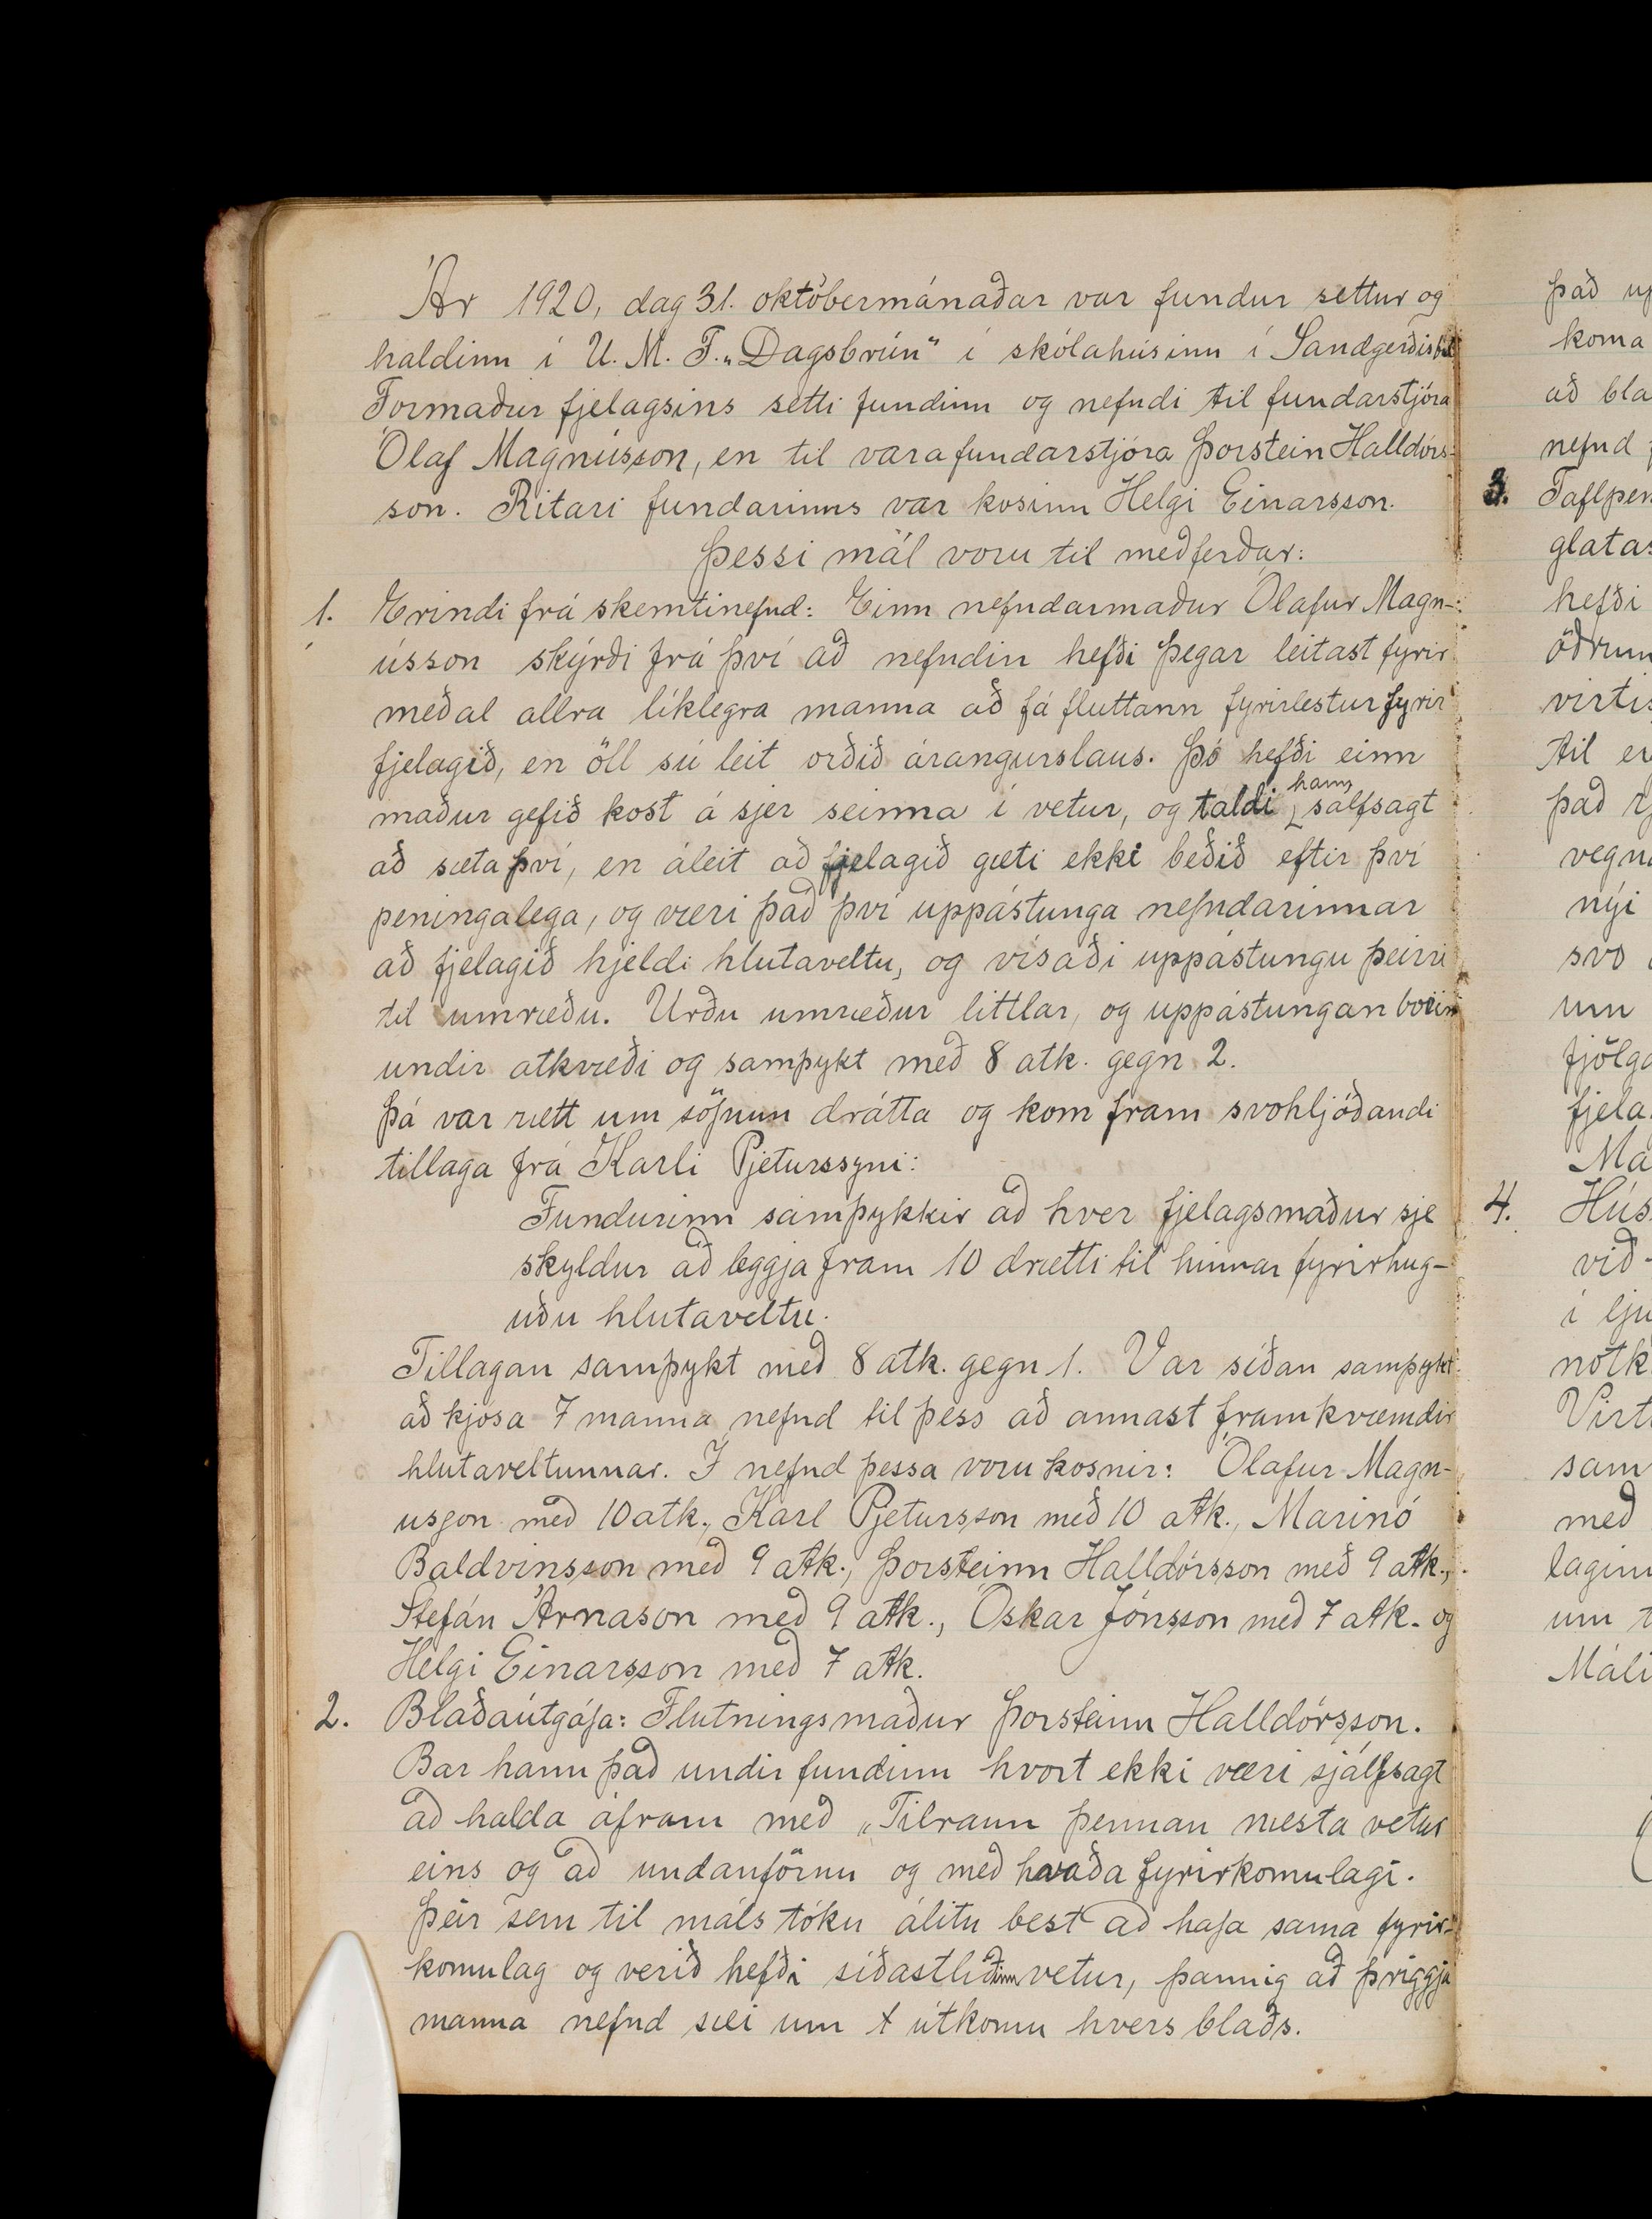 Ár 1920, dag 31. októbermánaðar var fundur settur og
haldinn í U. M. F. „Dagsbrún“ í skólahúsinu í Sandgerðisbót
Formaður fjelagsins setti fundinn og nefndi til fundarstjóra
Ólaf Magnússon, en til varafundarstjóra Þorstein Halldórs-
son. Ritari fundarinns var kosinn Helgi Einarsson.
Þessi mál voru til meðferðar:
1. Erindi frá skemtinefnd: Einn nefndarmaður Ólafur Magn-
ússon skýrði frá því að nefndin hefði þegar leitast fyrir
meðal allra líklegra manna að fá fluttann fyrirlestur fyrir
fjelagið, en öll sú leit orðið árangurslaus. Þó hefði einn
maður gefið kost á sjer seinna í vetur, og taldi hann salfsagt
að sæta því, en áleit að fjelagið gæti ekki beðið eftir því
peningalega, og væri það því uppástunga nefndarinnar
að fjelagið hjeldi hlutaveltu, og vísaði uppástungu þeirri
til umræðu. Urðu umræður littlar, og uppástungan borin
undir atkvæði og samþykt með 8 atk. gegn 2.
Þá var rætt um söfnun drátta og kom fram svohljóðandi
tillaga frá Karli Pjeturssyni:
Fundurinn samþykkir að hver fjelagsmaður sje
skyldur að leggja fram 10 drætti til hinnar fyrirhug-
uðu hlutaveltu.
Tillagan samþykt með 8 atk. gegn 1. Var síðan samþykt
að kjósa 7 manna nefnd til þess að annast framkvæmdir
hlutaveltunnar. Í nefnd þessa voru kosnir: Ólafur Magn-
usson með 10 atk., Karl Pjetursson með 10 atk., Marinó
Baldvinsson með 9 atk., Þorsteinn Halldórsson með 9 atk.,
Stefán Árnason með 9 atk., Óskar Jónsson með 7 atk. og
Helgi Einarsson með 7 atk.
2. Blaðaútgáfa: Flutningsmaður Þorsteinn Halldórsson.
Bar hann það undir fundinn hvort ekki væri sjálfsagt
að halda áfram með „Tilraun þennan næsta vetur
eins og að undanförnu og með hvaða fyrirkomulagi.
Þeir sem til máls tóku álitu best að hafa sama fyrir-
komulag og verið hefði síðastliðinn vetur, þannig að þriggja
manna nefnd sæi um útkomu hvers blaðs.
það
koma
að
nefnd
3.
hefði
öðrum
til
það
nýi
svo
um
4.
við
í
með
um